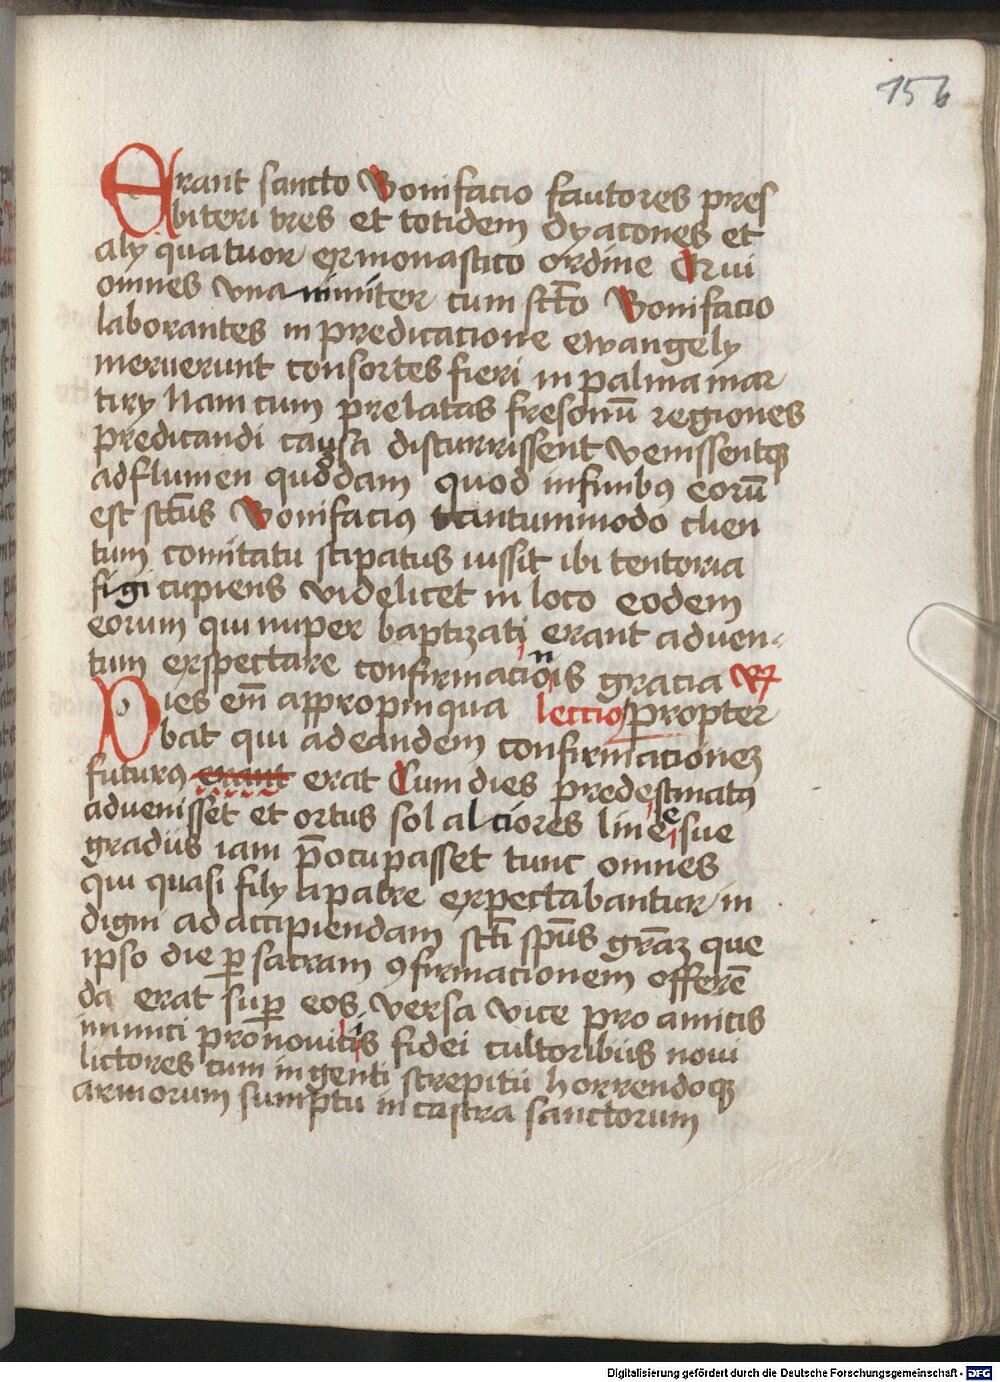 156
Erant sancto Bonifacio fautores pres
biteri tres et totidem dyacones et
aly quatuor ex monastico ordine Qui
omnes vnanimiter cum sc̄to Bonifacio
laborantes in predicacione ewangely
meruerunt consortes fieri in palma mar
tiry Nam cum prelatas fresonū regiones
predicandi causa discurrissent venissentqꝫ
ad flumen quoddam quod in finibꝰ eorū
est sc̄tus Bonifaciꝰ tantummodo clien
tum comitatu stipatus iussit ibi tentoria
figi cupiens videlicet in loco eodem
eorum qui nuper baptizati erant aduen-
tum exspectare confirmacionis gracia ℟
Dies em̄ appropinqua lectio propter
bat qui ad eandem confirmacionem
futurꝰ erant erat Cum dies predestinatꝰ
advenisset et ortus sol alciores linee sue
gradus iam p̄ocupasset tunc omnes
qui quasi fily a patre expectabantur in
digni ad accipiendam sc̄ti sp̄us gr̄aꝫ que
ipso die ꝑ sacram ꝯfirmacionem offerē
da erat suꝑ eos versa vice pro amicis
inimici pro nouiciis fidei cultoribus noui
lictores cum ingenti strepitu horrendoqꝫ
armorum sumptu in castra sanctorum
Digitalisierung gefördert durch die Deutsche Forschungsgemeinschaft - DFG